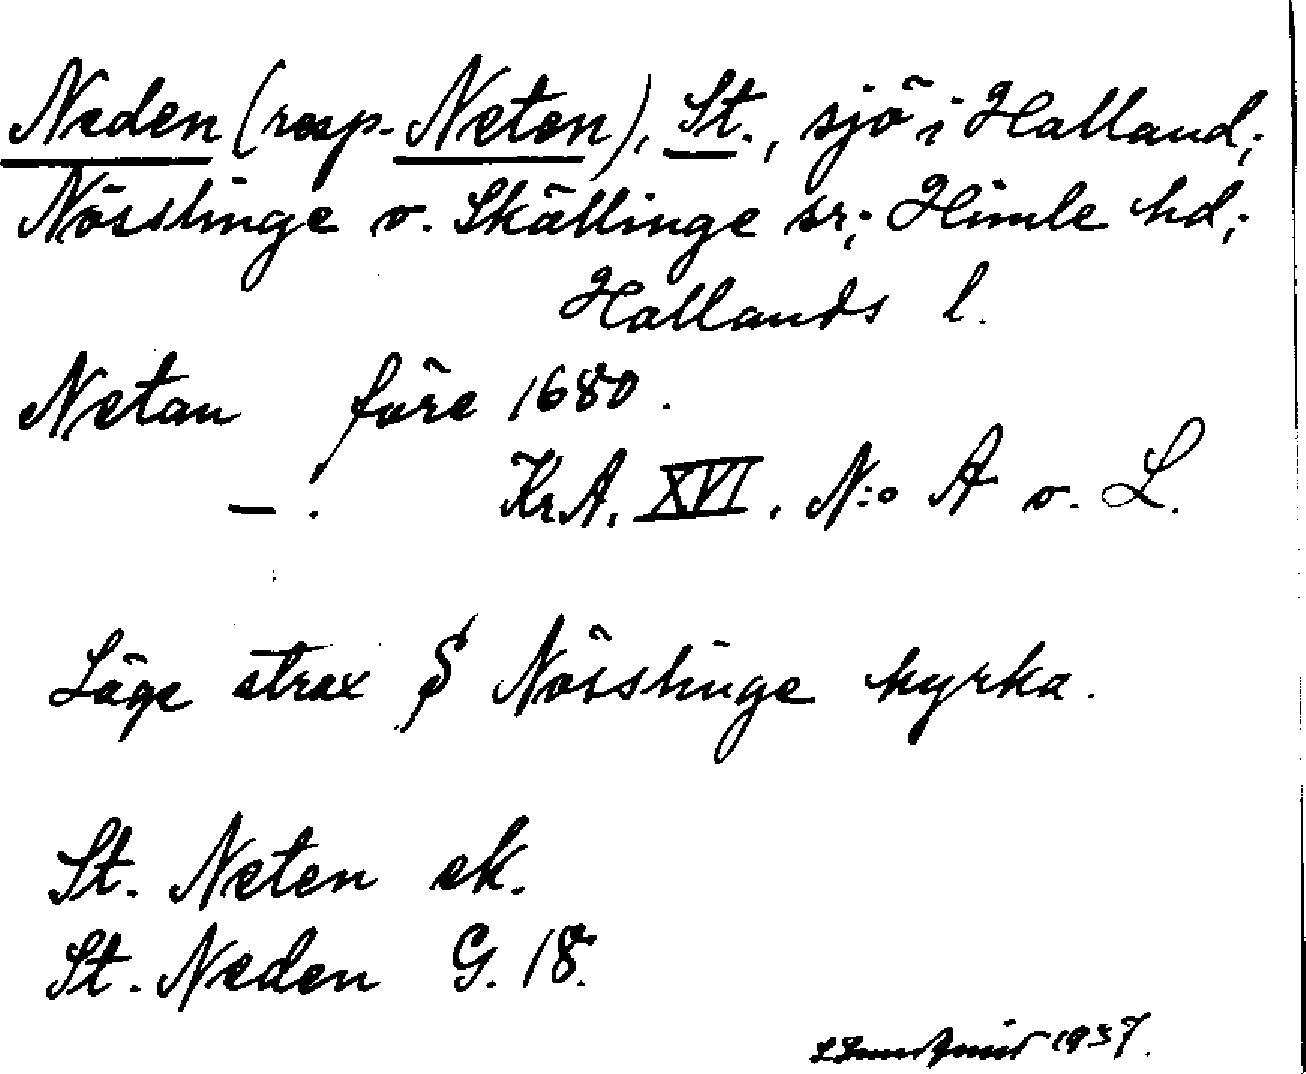 Neden (resp. Neten), St., sjö i Halland;
Nösslinge o. Skällinge sr; Himle hd;
Hallands l.
Netan före 1680.
— . Kr.A. XVI. N:o A o. L.
Läge strax S Nösslinge kyrka.
St. Neten ek.
St. Neden G. 18.
1937.